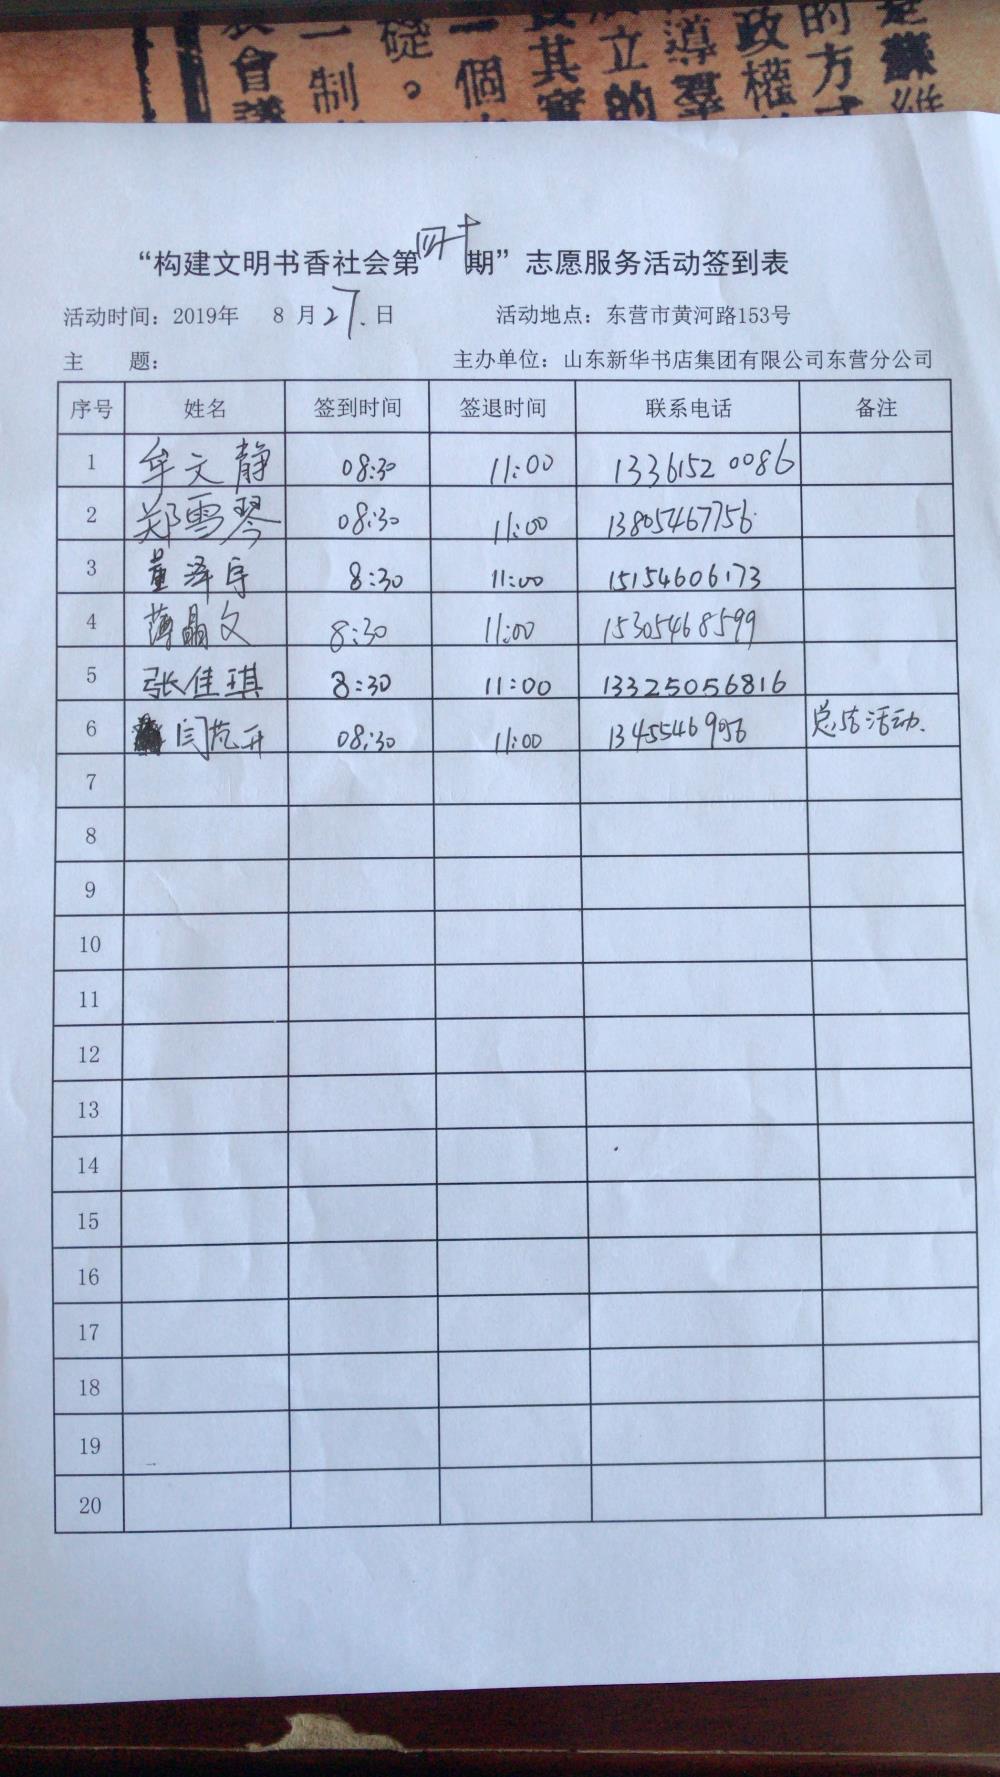 “构建文明书香社会第四十期”志愿服务活动签到表
活动时间：2019年 8月27.日 活动地点：东营市黄河路153号
主 题： 主办单位：山东新华书店集团有限公司东营分公司
序号 姓名 签到时间 签退时间 联系电话 备注
1 牟文静 08:30 11:00 13361520086
2 郑雪琴 08:30 11:00 13805467756
3 董泽宇 8:30 11:00 15154606173
4 薄晶文 8:30 11:00 15305468599
5 张佳琪 8:30 11:00 13325056816
6 闫 08:30 11:00 总结活动.
7
8
9
10
11
12
13
14
15
16
17
18
19
20